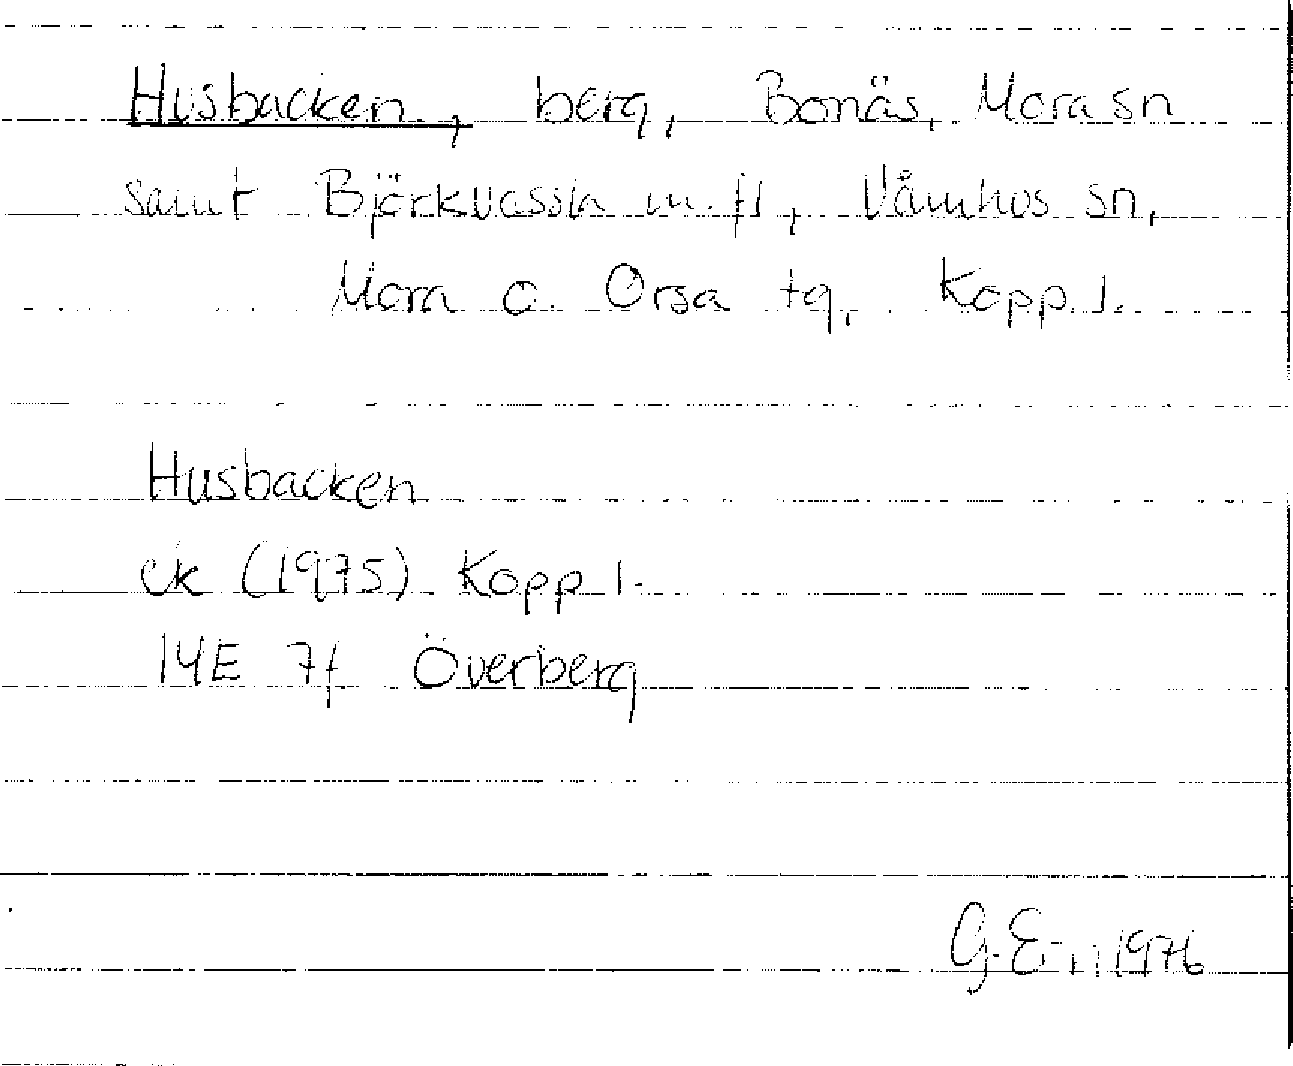 Husbacken, berg, Bonäs, Mora sn
samt Björkvassla m. fl, Våmhus sn,
Mora o. Orsa tg, Kopp. l.
Husbacken
ek (1975) Kopp l.
14E 7f Överberg
G. E-n 1976